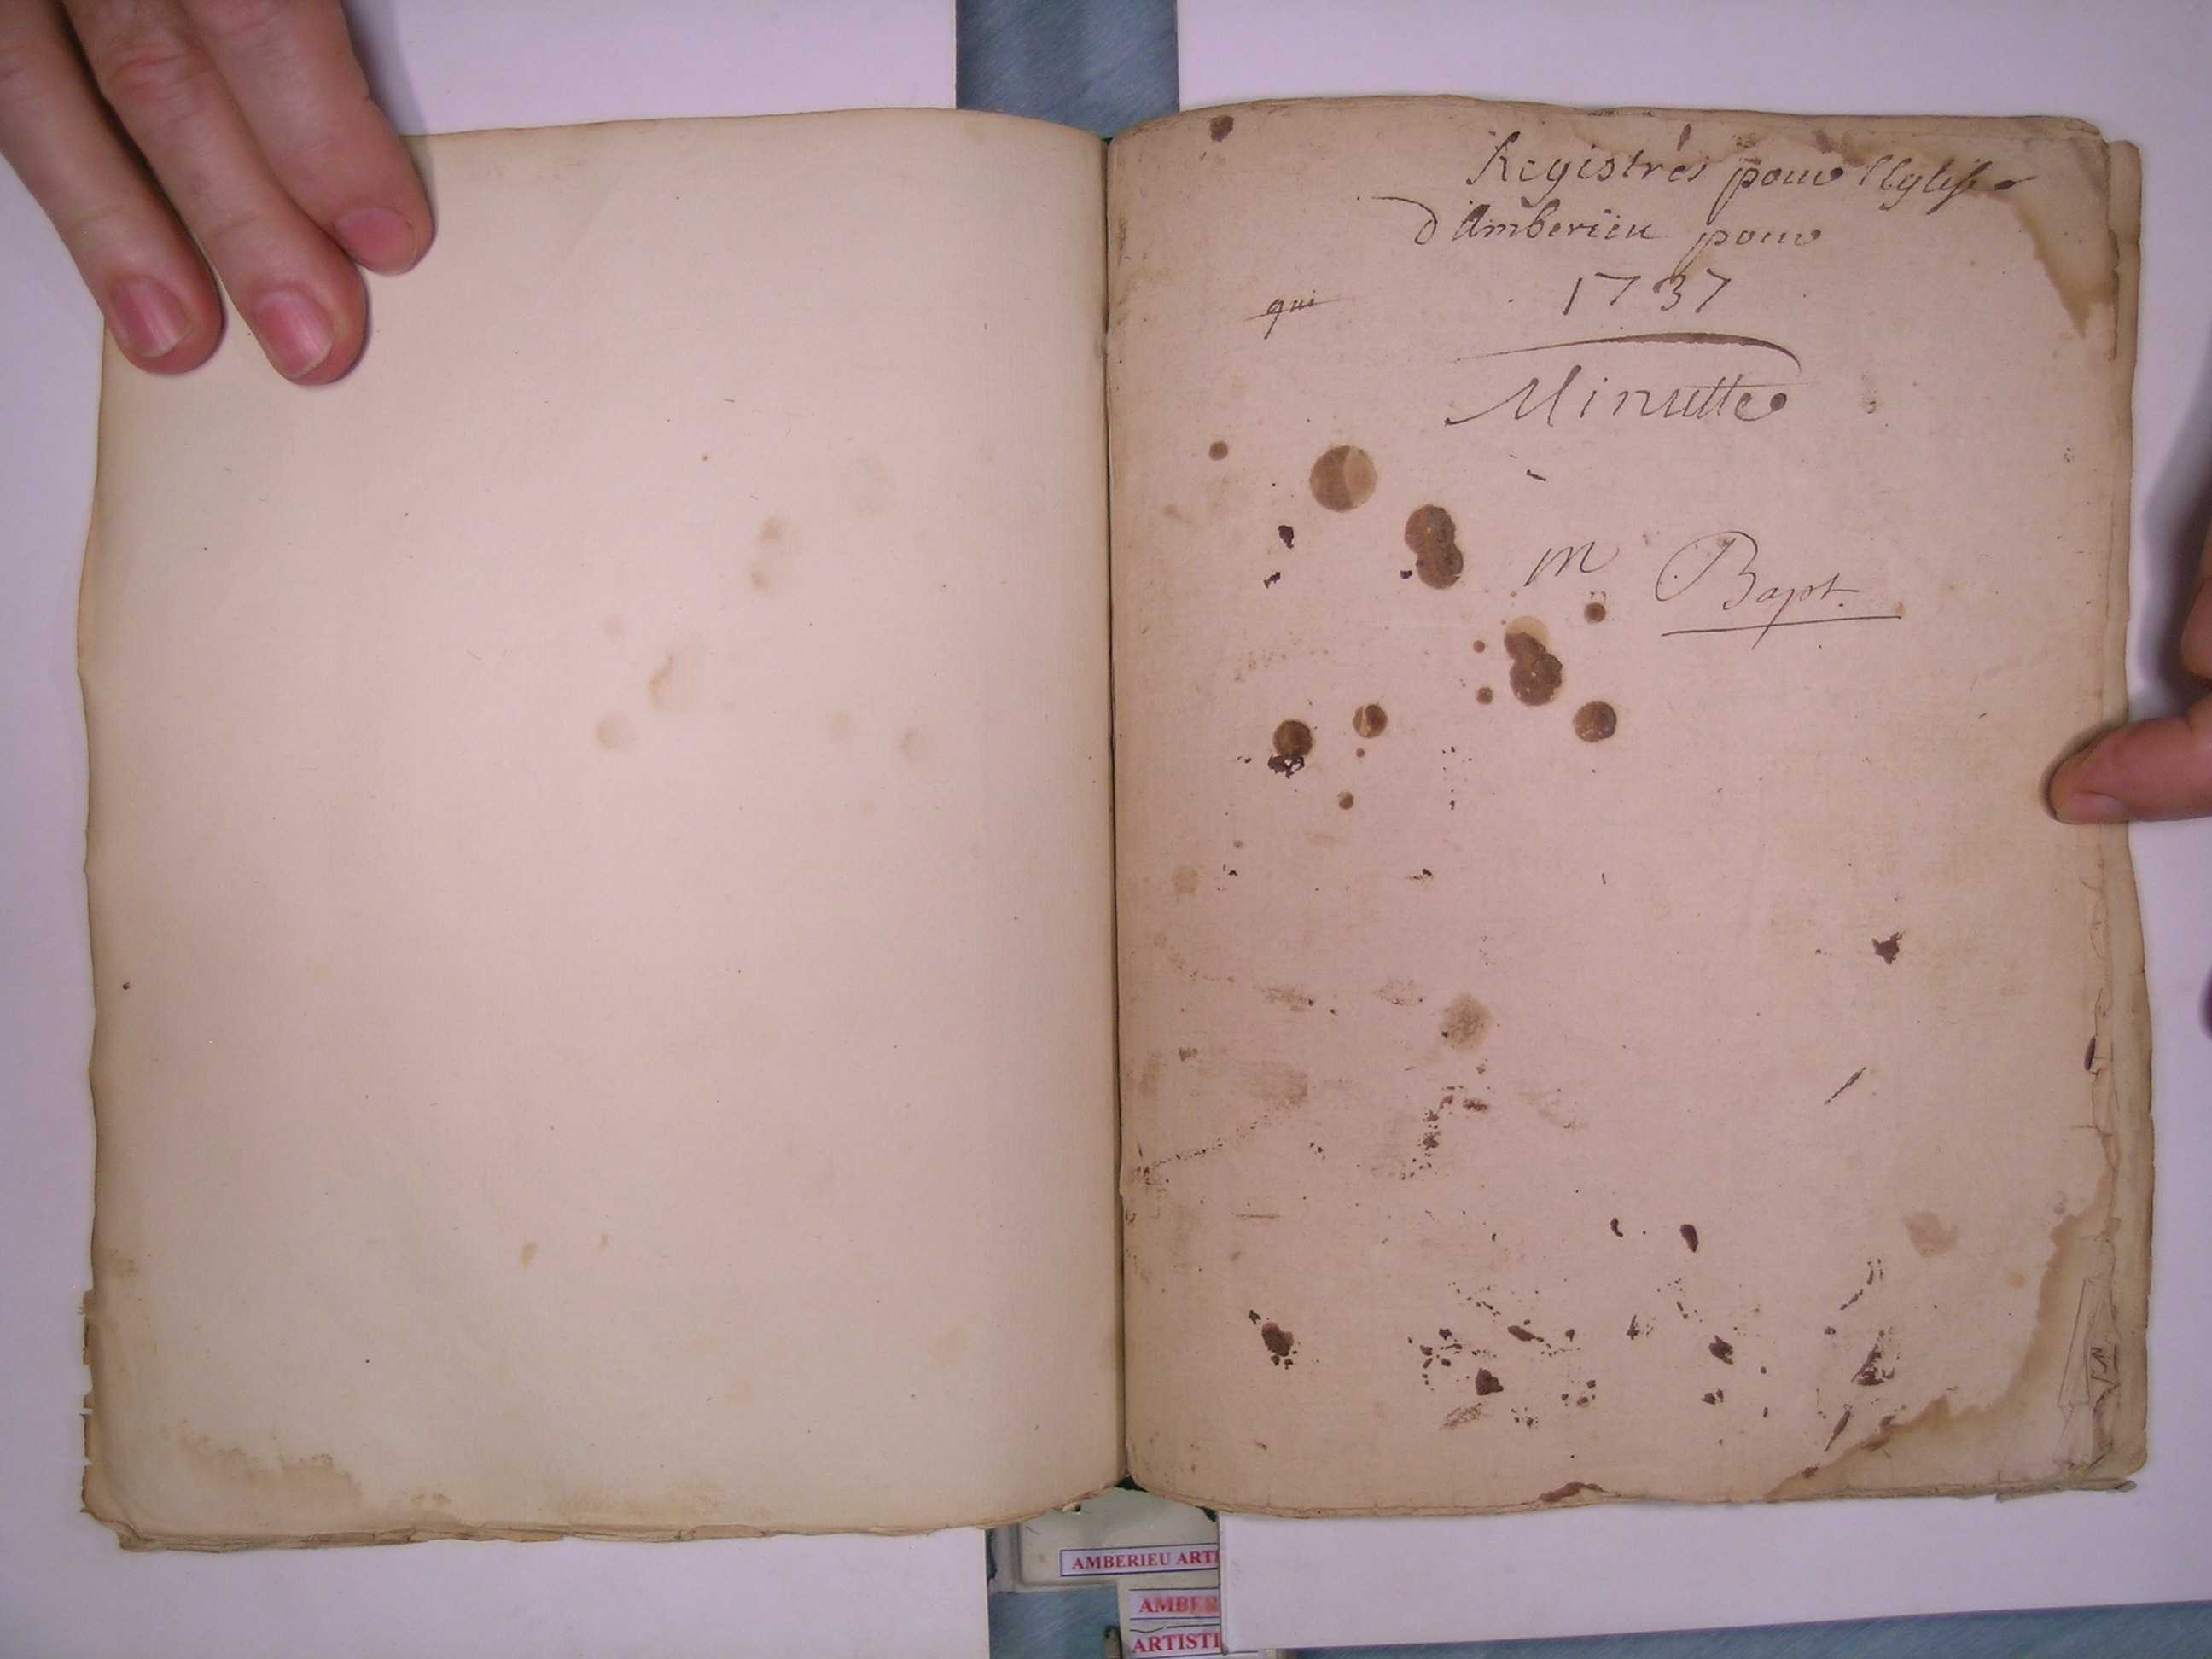 Registres pour l'Eglise
d'Amberieu pour
1737
qui
Minutte
m Bapt.
AMBERIEU ARTI
AMBER
ARTISTI